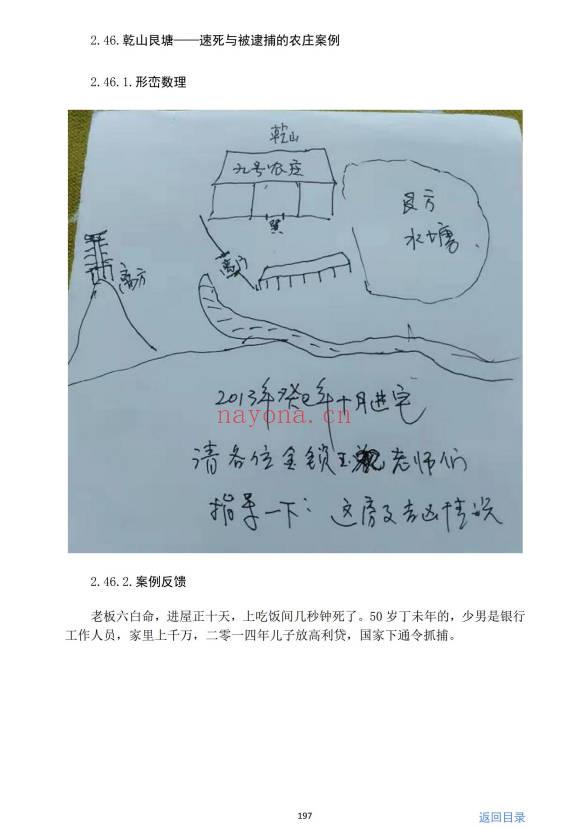 2.46.乾山艮塘——速死与被逮捕的农庄案例
2.46.1.形峦数理
乾山
九号农庄
巽
艮方
水塘
离门
离方
2013年癸巳年十月进宅
nayona.cn
请各位金锁玉 老师们
指导一下：这房子吉凶情况
2.46.2.案例反馈
老板六白命，进屋正十天，上吃饭间几秒钟死了。50 岁丁未年的，少男是银行
工作人员，家里上千万，二零一四年儿子放高利贷，国家下通令抓捕。
197
返回目录